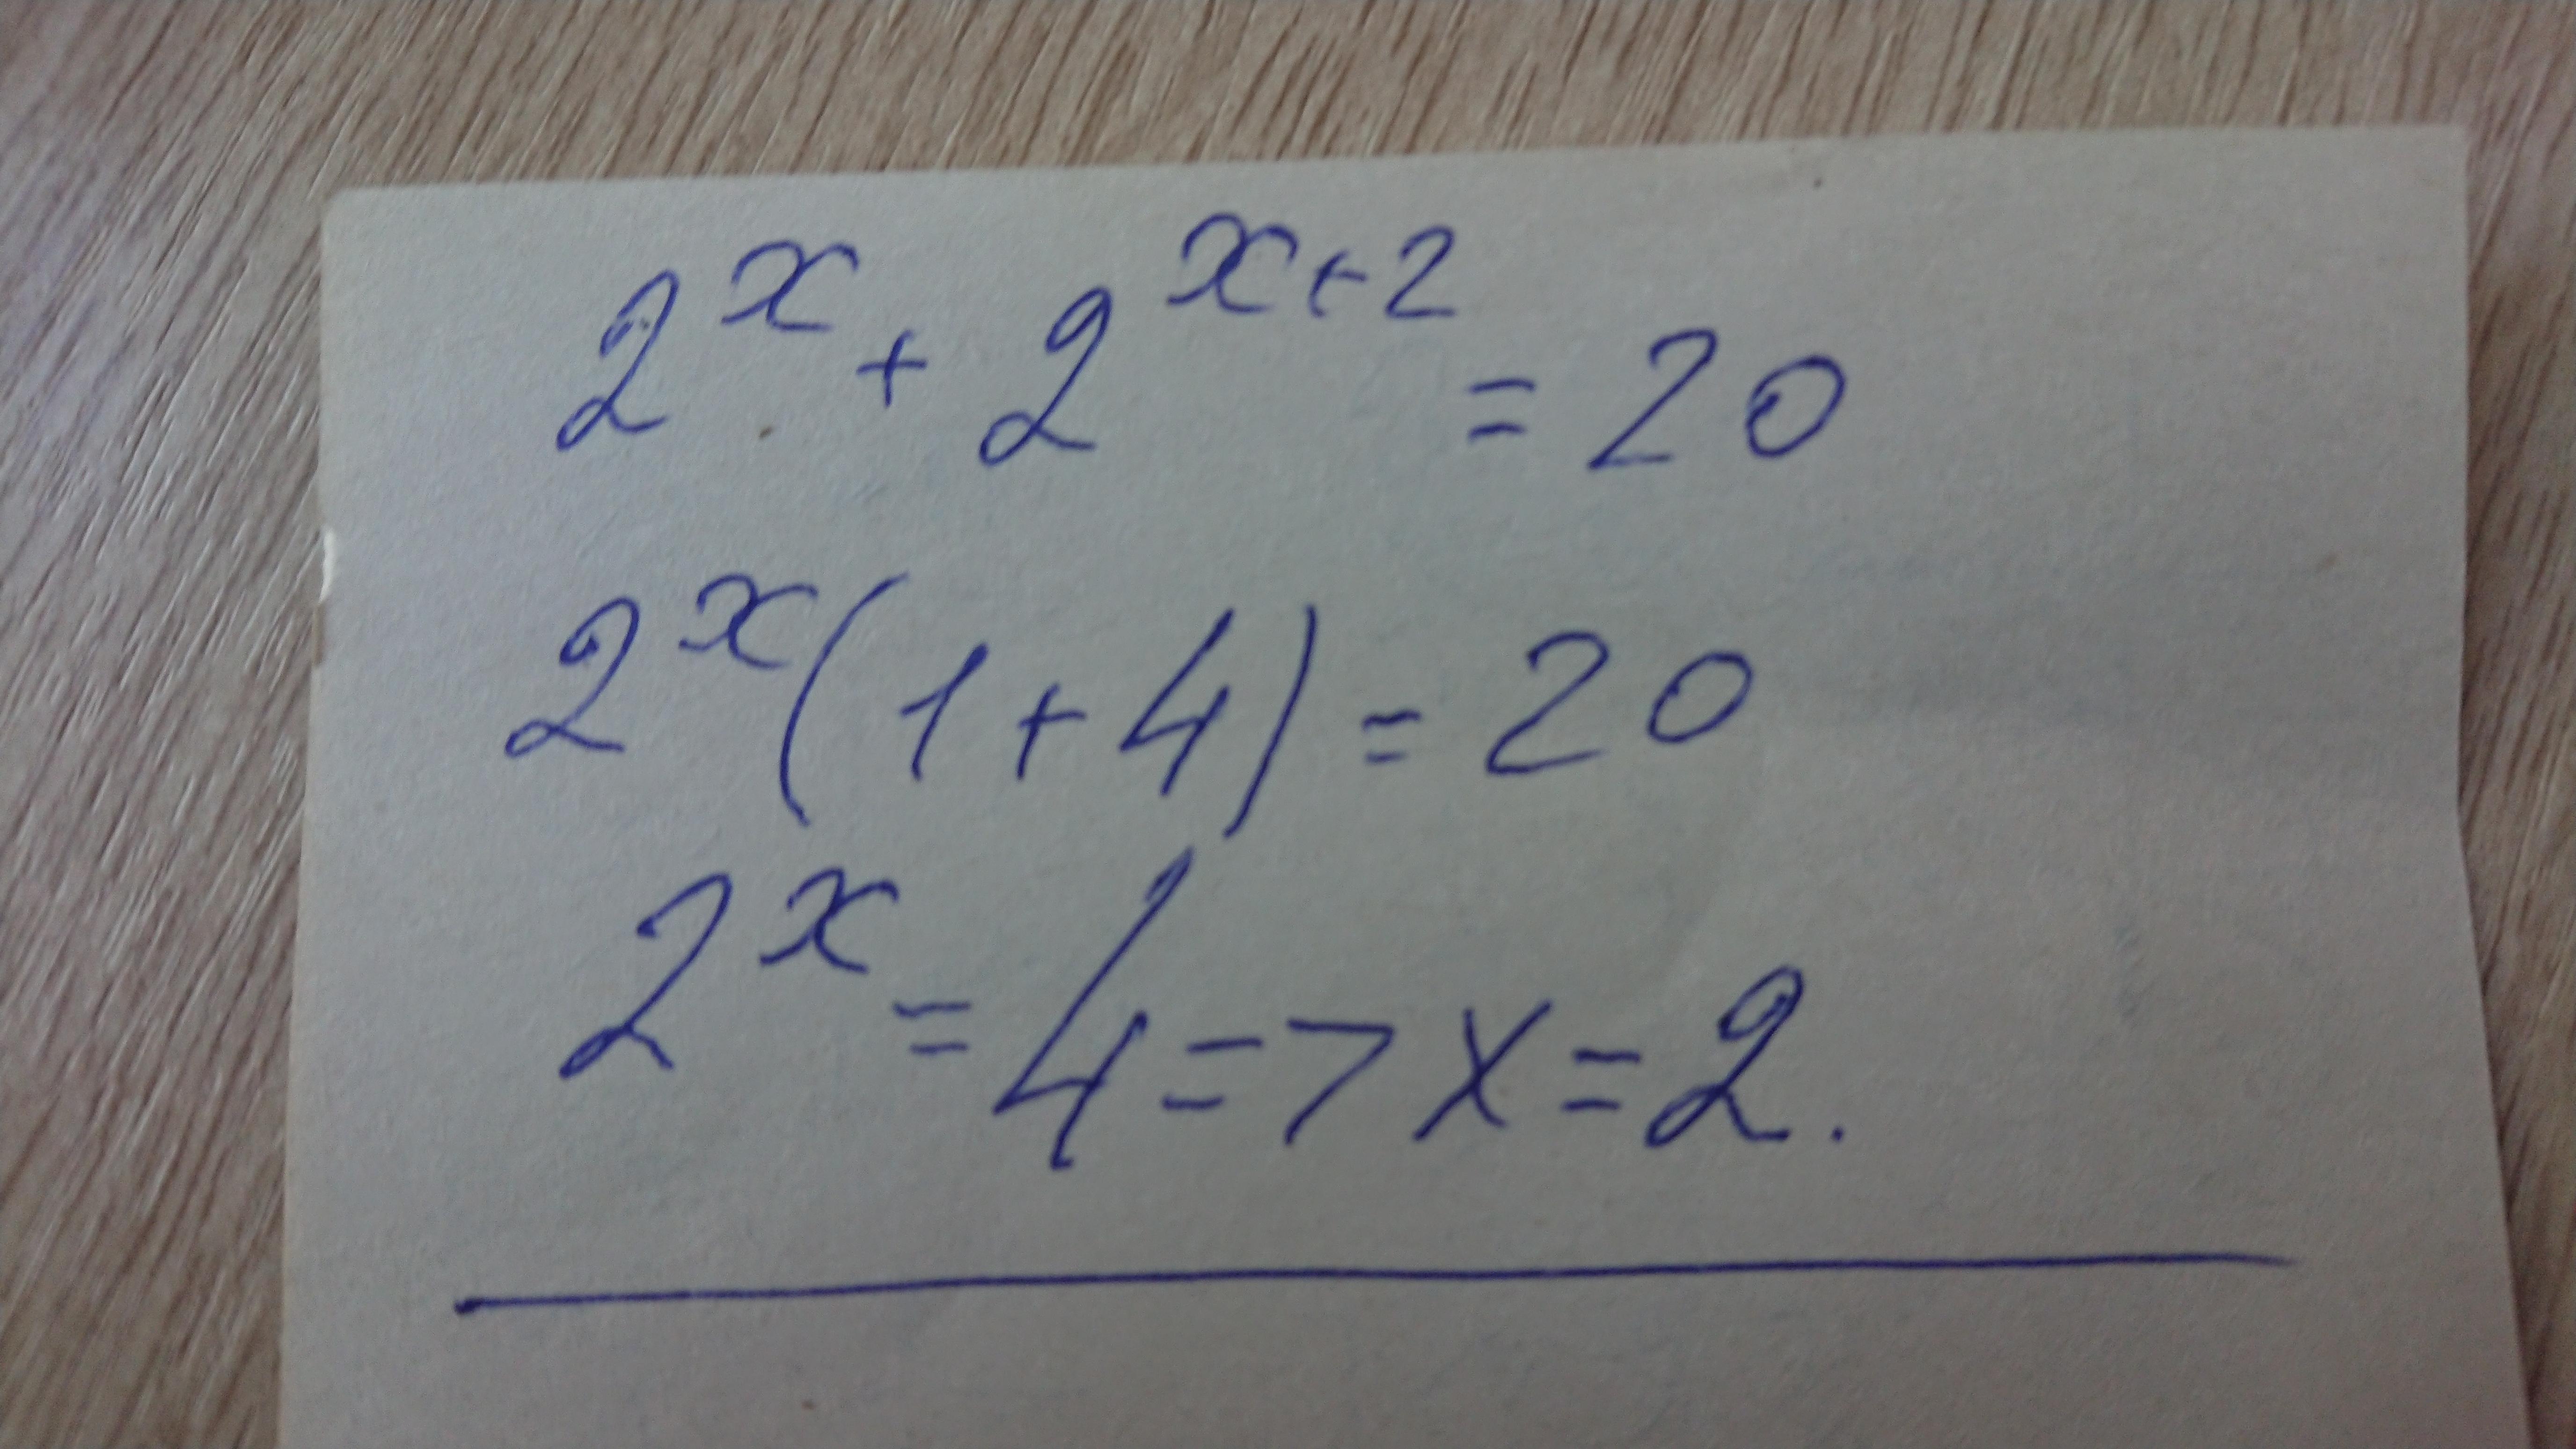 2^x + 2^{x+2} = 20
2^x (1 + 4) = 20
2^x = 4 => x = 2.